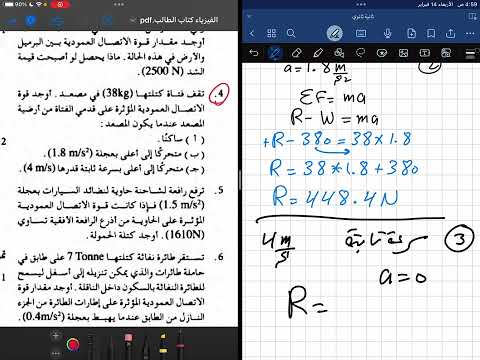 الفيزياء كتاب الطالب.pdf
أوجد مقدار قوة الاتصال العمودية بين البرميل
والأرض في هذه الحالة. ماذا يحصل لو أصبحت قيمة
الشد (2500 N)
4. تقف فتاة كتلتها (38kg) في مصعد. أوجد قوة
الاتصال العمودية المؤثرة على قدمي الفتاة من أرضية
المصعد عندما يكون المصعد:
( أ ) ساكنًا.
(ب) متحركًا إلى أعلى بعجلة (1.8 m/s²).
(جـ) متحركًا إلى أعلى بسرعة ثابتة قدرها (4 m/s)
5. ترفع رافعة لشاحنة حاوية لنضائد السيارات بعجلة
(1.5 m/s²) فإذا كانت قوة الاتصال العمودية
المؤثرة على الحاوية من أذرع الرافعة الأفقية تساوي
(1610N). أوجد كتلة الحمولة.
6. تستقر طائرة نفاثة كتلتها 7 Tonne على طابق في
حاملة طائرات والذي يمكن تنزيله إلى أسفل ليسمح
للطائرة النفاثة بالسكون داخل الناقلة. أوجد مقدار قوة
الاتصال العمودية المؤثرة على إطارات الطائرة من الجزء
النازل من الطابق عندما يهبط بعجلة (0.4m/s²).
4:59 ص الأربعاء ١٤ فبراير
ثانية ثانوي
a = 1.8 m/s² 2
ΣF = ma
R - W = ma
+R - 380 = 38 × 1.8
R = 38 * 1.8 + 380
R = 448.4 N
3 سرعة ثابتة 4 m/s
a = 0
R =